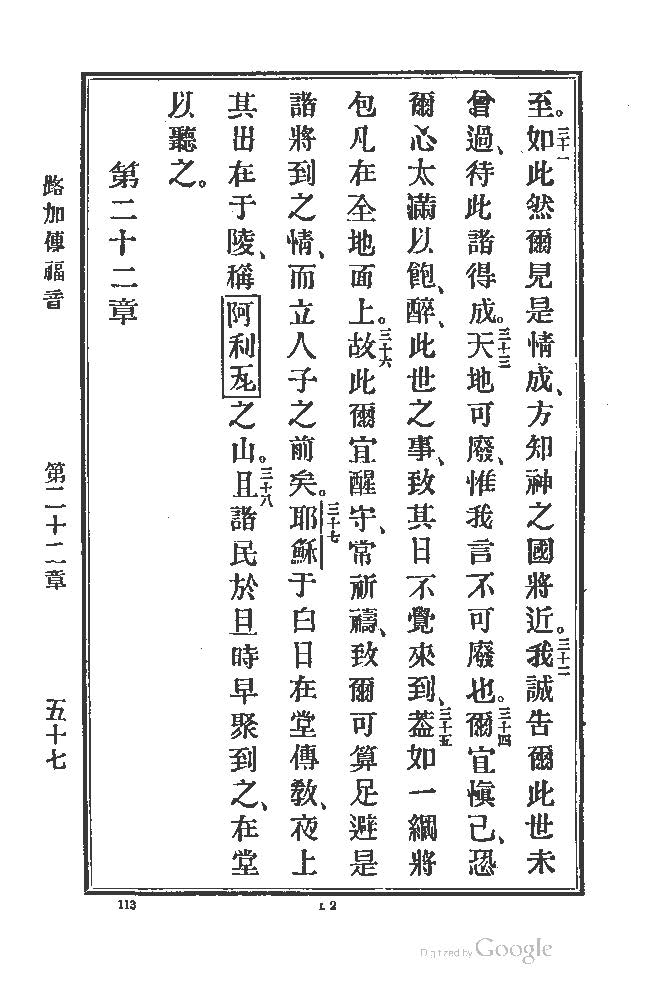 至。三十一如此然爾見是情成、方知神之國將近。三十二我誠告爾此世未
曾過、待此諸得成。三十三天地可廢、惟我言不可廢也。三十四爾宜慎己、恐
爾心太滿以飽、醉、此世之事、致其日不覺來到、三十五蓋如一網將
包凡在全地面上。三十六故此爾宜醒守、常祈禱、致爾可算足避是
諸將到之情、而立人子之前矣。三十七耶穌于白日在堂傳教、夜上
其出在于陵、稱阿利瓦之山。三十八且諸民於旦時早聚到之、在堂
以聽之。
第二十二章
路加傳福音 第二十二章 五十七
113
I. 2
Digitized by Google